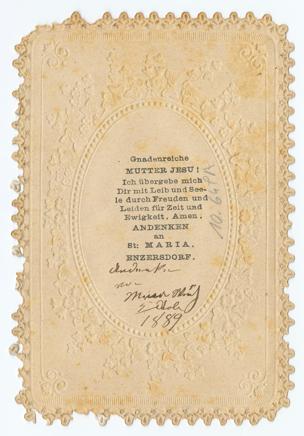 Gnadenreiche
MUTTER JESU!
Ich übergebe mich
Dir mit Leib und See-
le durch Freuden und
Leiden für Zeit und
Ewigkeit. Amen.
ANDENKEN
an
St: MARIA.
ENZERSDORF.
1889